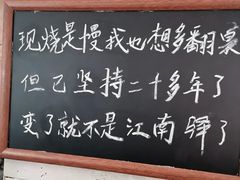 现烧是慢我也想多翻桌
但已坚持二十多年了
变了就不是江南驿了